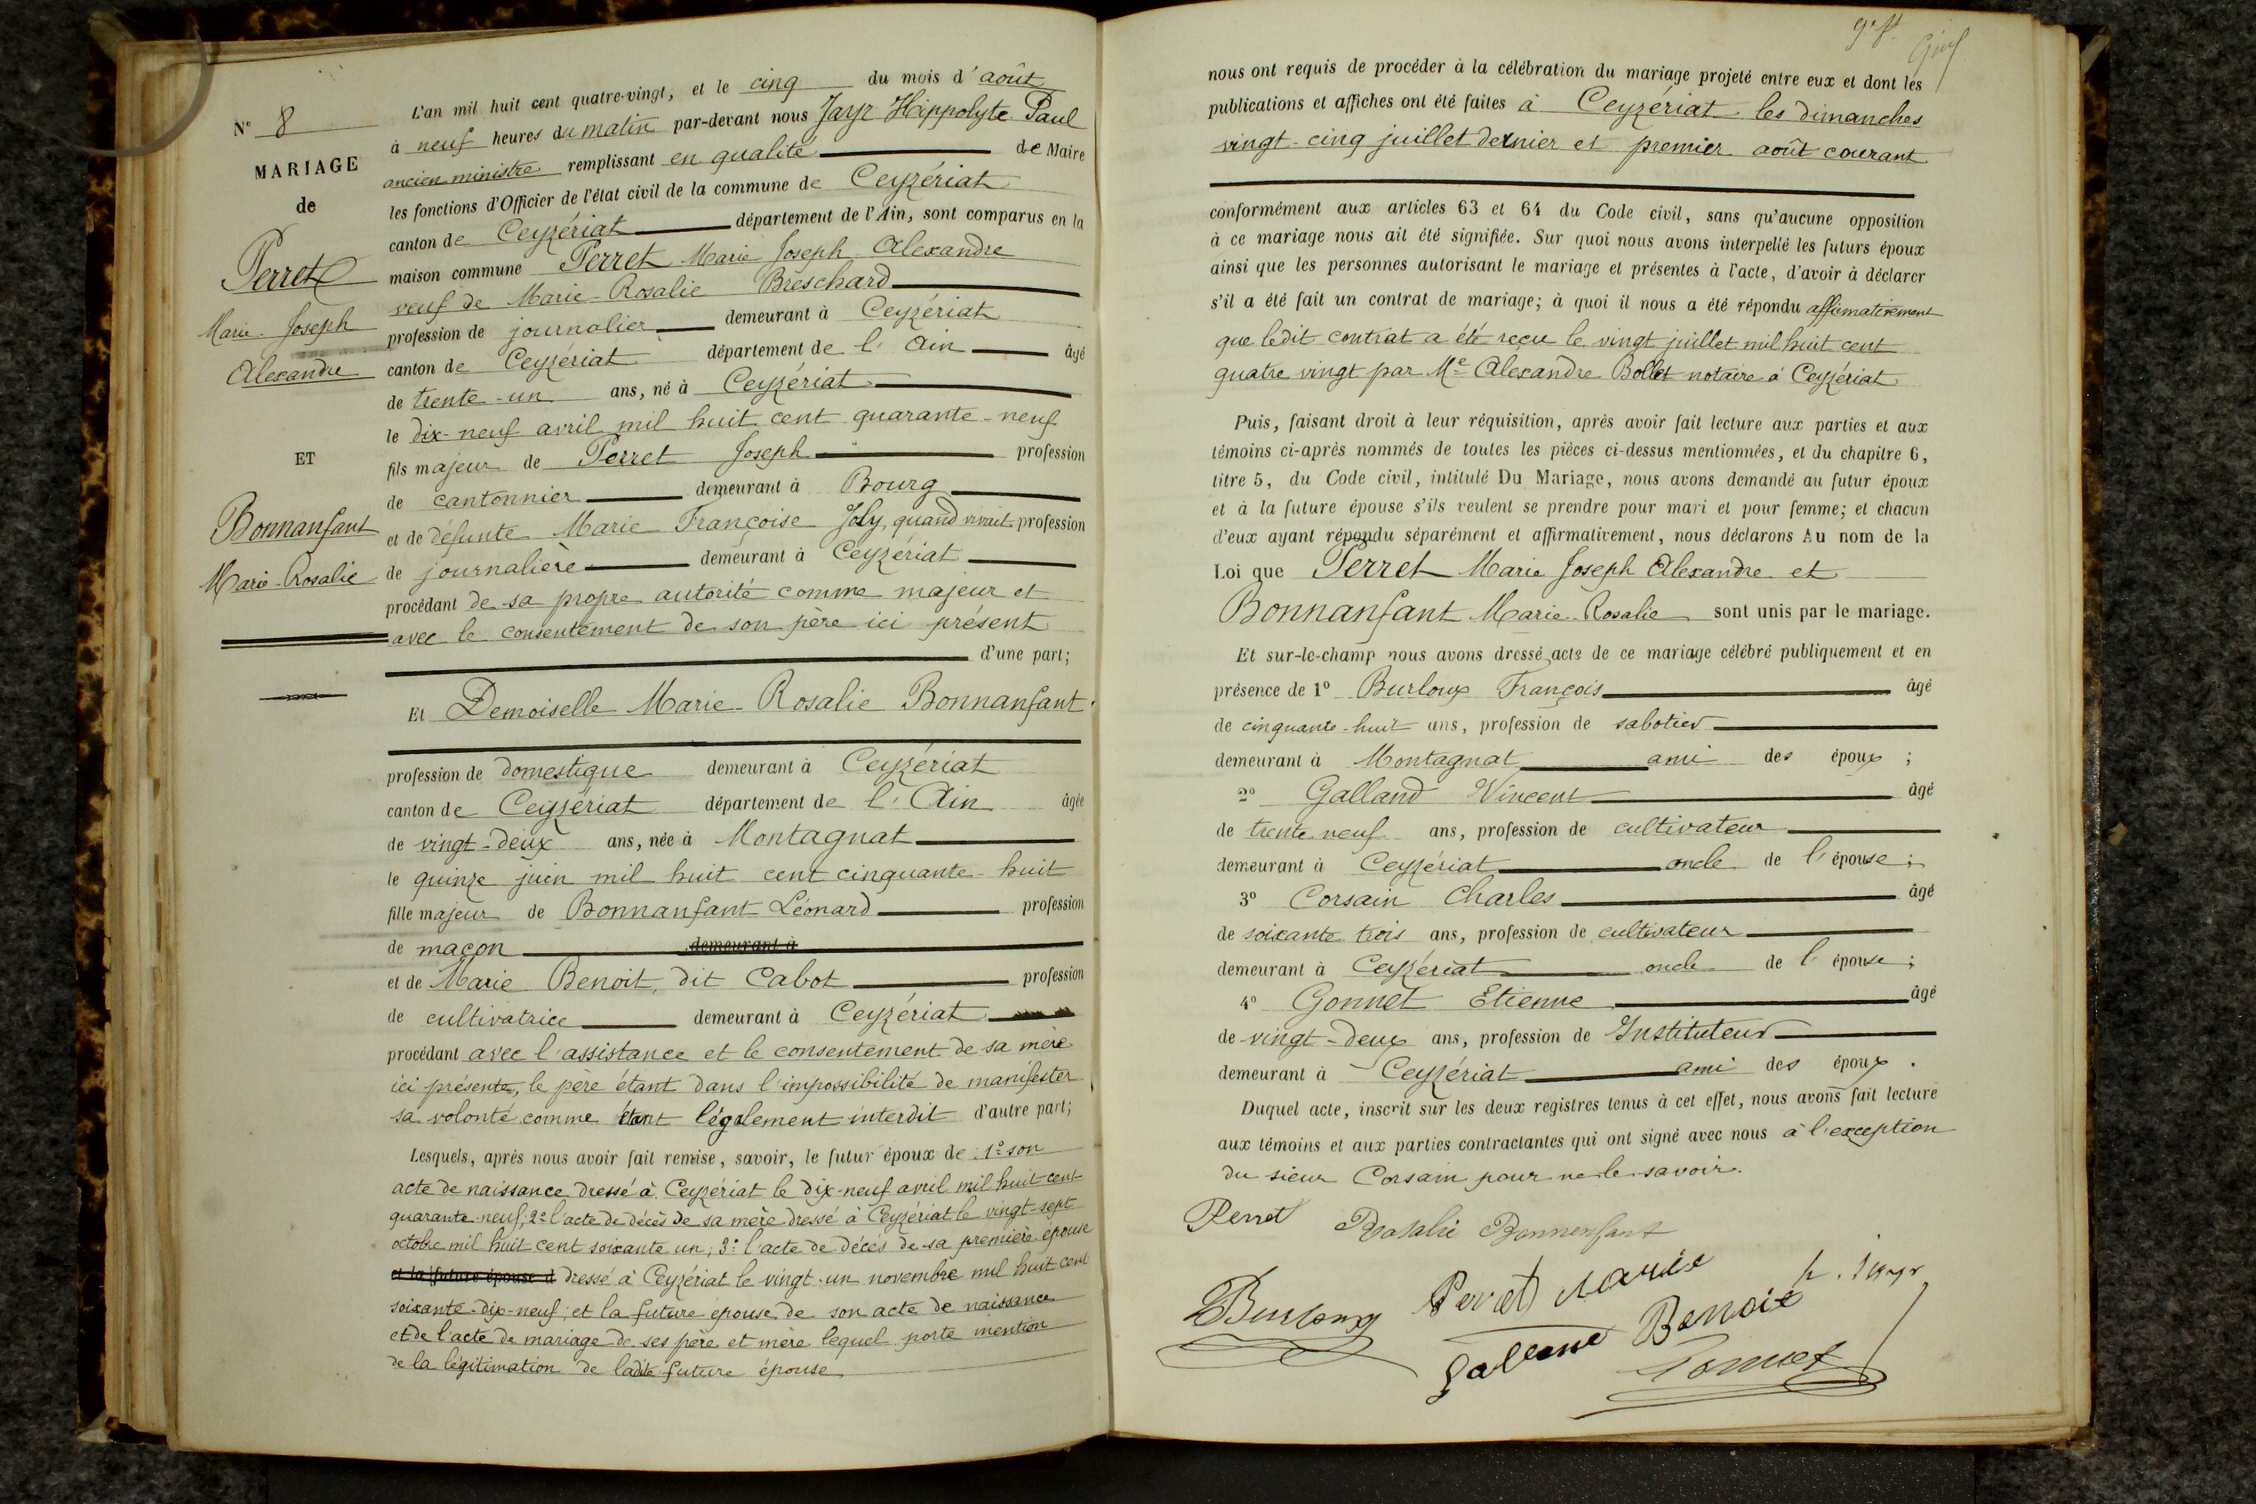 N° 8
MARIAGE
de
Perret
Marie-Joseph
Alexandre
ET
Bonnanfant
Marie-Rosalie
L'an mil huit cent quatre-vingt, et le cinq du mois d'août
à neuf heures du matin par-devant nous Jayr Hippolyte Paul
ancien ministre remplissant en qualité de Maire
les fonctions d'Officier de l'état civil de la commune de Ceyzériat
canton de Ceyzériat département de l'Ain, sont comparus en la
maison commune Perret Marie Joseph Alexandre
veuf de Marie-Rosalie Breschard
profession de journalier demeurant à Ceyzériat
canton de Ceyzériat département de l'Ain âgé
de trente-un ans, né à Ceyzériat
le dix-neuf avril mil huit cent quarante-neuf
fils majeur de Perret Joseph profession
de cantonnier demeurant à Bourg
et de défunte Marie Françoise Joly, quand vivait profession
de journalière demeurant à Ceyzériat
procédant de sa propre autorité comme majeur et
avec le consentement de son père ici présent
d'une part;
Et Demoiselle Marie-Rosalie Bonnanfant
profession de domestique demeurant à Ceyzériat
canton de Ceyzériat département de l'Ain âgée
de vingt-deux ans, née à Montagnat
le quinze juin mil huit cent cinquante-huit
fille majeur de Bonnanfant Léonard profession
de maçon demeurant à
et de Marie Benoit, dit Cabot profession
de cultivatrice demeurant à Ceyzériat
procédant avec l'assistance et le consentement de sa mère
ici présente, le père étant dans l'impossibilité de manifester
sa volonté comme étant légalement interdit d'autre part;
Lesquels, après nous avoir fait remise, savoir, le futur époux de 1° son
acte de naissance dressé à Ceyzériat le dix-neuf avril mil huit cent
quarante-neuf; 2° l'acte de décès de sa mère dressé à Ceyzériat le vingt-sept
octobre mil huit cent soixante un; 3° l'acte de décès de sa première épouse
et la future épouse d dressé à Ceyzériat le vingt-un novembre mil huit cent
soixante-dix-neuf; et la future épouse de son acte de naissance
et de l'acte de mariage de ses père et mère lequel porte mention
de la légitimation de ladite future épouse
nous ont requis de procéder à la célébration du mariage projeté entre eux et dont les
publications et affiches ont été faites à Ceyzériat les dimanches
vingt-cinq juillet dernier et premier août courant
conformément aux articles 63 et 64 du Code civil, sans qu'aucune opposition
à ce mariage nous ait été signifiée. Sur quoi nous avons interpellé les futurs époux
ainsi que les personnes autorisant le mariage et présentes à l'acte, d'avoir à déclarer
s'il a été fait un contrat de mariage; à quoi il nous a été répondu affirmativement
que ledit contrat a été reçu le vingt juillet mil huit cent
quatre vingt par Me Alexandre Bollet notaire à Ceyzériat
Puis, faisant droit à leur réquisition, après avoir fait lecture aux parties et aux
témoins ci-après nommés de toutes les pièces ci-dessus mentionnées, et du chapitre 6,
titre 5, du Code civil, intitulé Du Mariage, nous avons demandé au futur époux
et à la future épouse s'ils veulent se prendre pour mari et pour femme; et chacun
d'eux ayant répondu séparément et affirmativement, nous déclarons Au nom de la
Loi que Perret Marie Joseph Alexandre et
Bonnanfant Marie-Rosalie sont unis par le mariage.
Et sur-le-champ nous avons dressé acte de ce mariage célébré publiquement et en
présence de 1° Burloux François âgé
de cinquante-huit ans, profession de sabotier
demeurant à Montagnat ami des époux;
2° Galland Vincent âgé
de trente neuf ans, profession de cultivateur
demeurant à Ceyzériat oncle de l'épouse;
3° Corsain Charles âgé
de soixante trois ans, profession de cultivateur
demeurant à Ceyzériat oncle de l'épouse;
4° Gonnet Etienne âgé
de vingt-deux ans, profession de Instituteur
demeurant à Ceyzériat ami des époux.
Duquel acte, inscrit sur les deux registres tenus à cet effet, nous avons fait lecture
aux témoins et aux parties contractantes qui ont signé avec nous à l'exception
du sieur Corsain pour ne le savoir.
Perret Rosalie Bonnenfant
Burloux Perret Marie h. Jayr
Galland Benoit
Gonnet